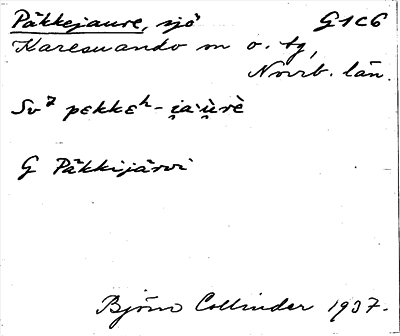 Päkkejaure, sjö G1c6
Karesuando sn o. tg,
Norrb. län.
Sv⁷ pɛkkɛʰ-i̯a·ùrè
G Päkkijärvi
Björn Collinder 1937.